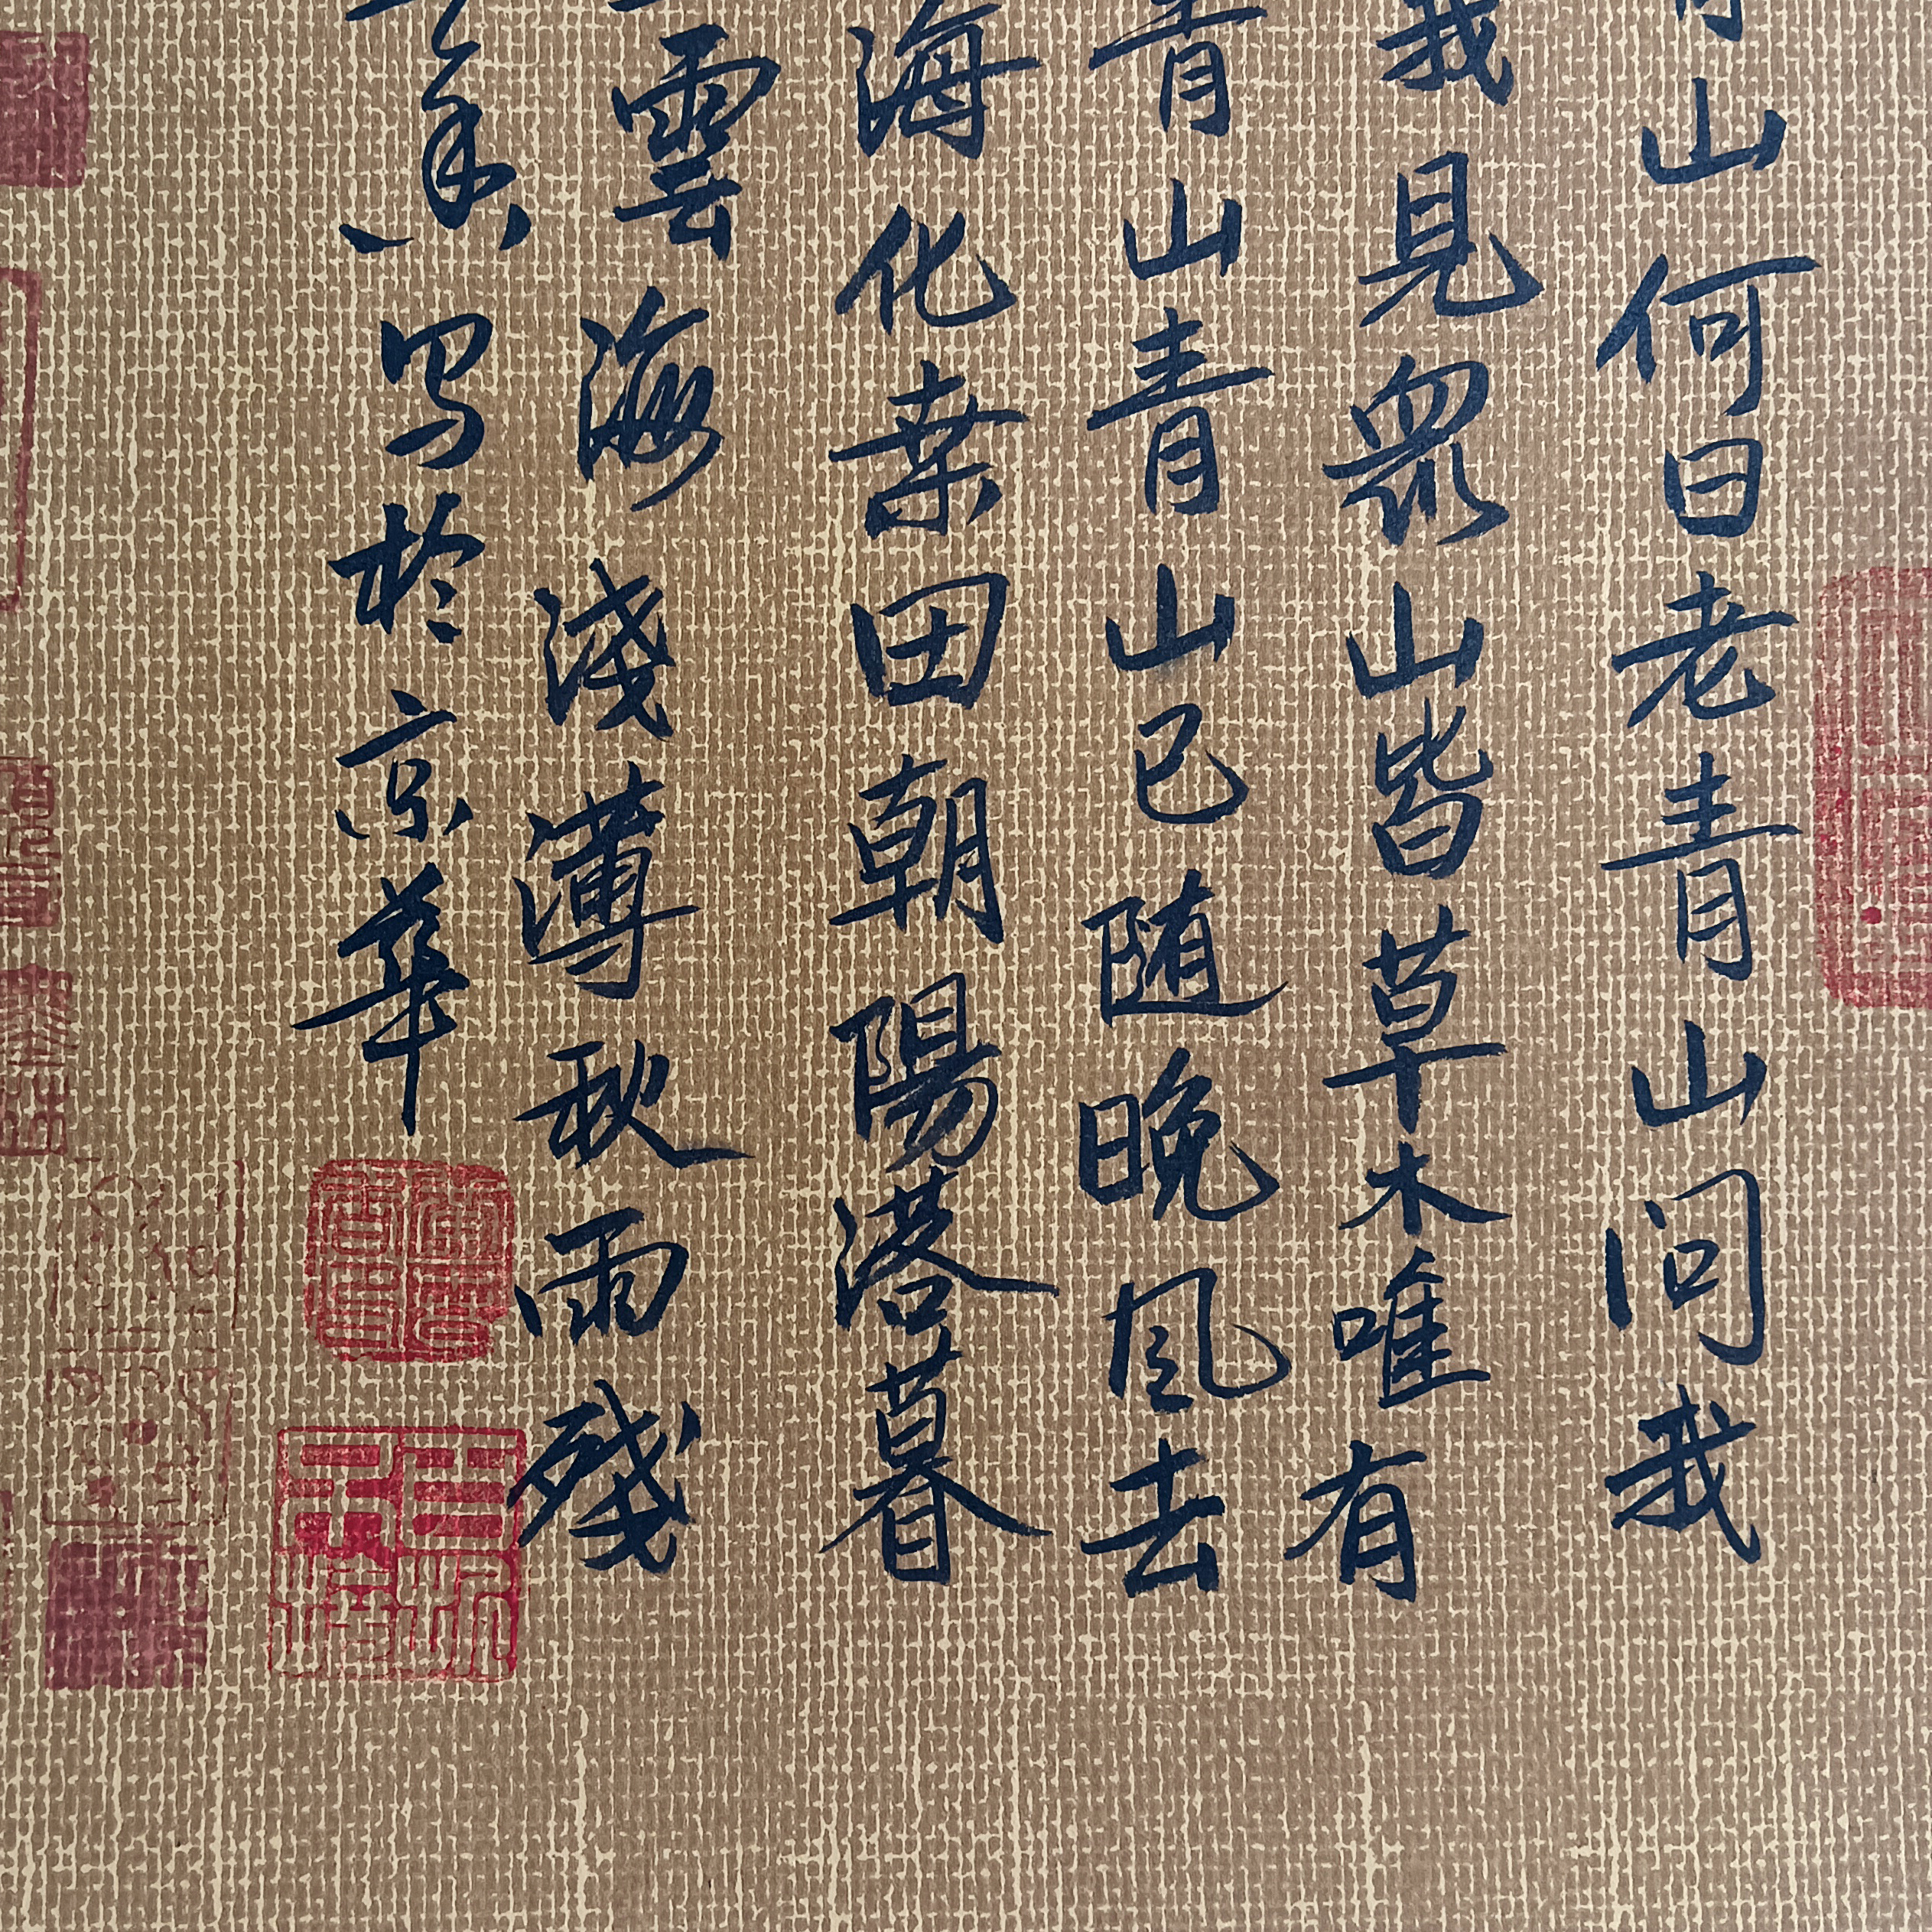 山何日老青山问我
我見眾山皆草木唯有
青山青山已随晚风去
海化桒田朝陽落暮
雲海淺薄秋雨残
写於京華